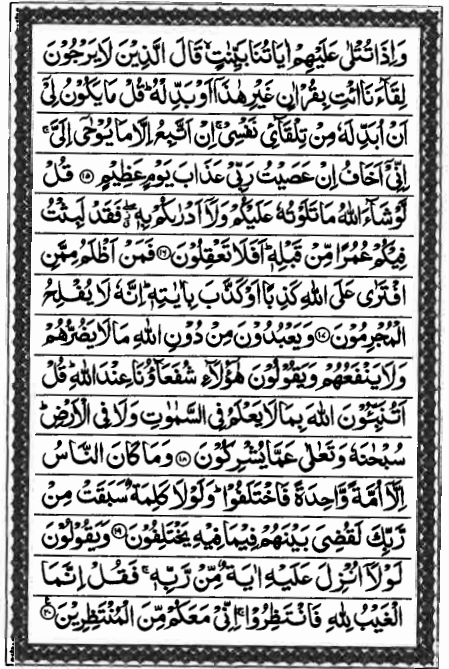 وَاِذَا تُتْلٰى عَلَيْهِمْ اٰيَاتُنَا بَيِّنٰتٍ ۙ قَالَ الَّذِيْنَ لَا يَرْجُوْنَ
لِقَآءَنَا ائْتِ بِقُرْاٰنٍ غَيْرِ هٰذَآ اَوْ بَدِّلْهُ ؕ قُلْ مَا يَكُوْنُ لِىْٓ
اَنْ اُبَدِّلَهٗ مِنْ تِلْقَآئِ نَفْسِىْ ۚ اِنْ اَتَّبِعُ اِلَّا مَا يُوْحٰٓى اِلَىَّ ۚ
اِنِّىْٓ اَخَافُ اِنْ عَصَيْتُ رَبِّىْ عَذَابَ يَوْمٍ عَظِيْمٍ ﴿۱۵﴾ قُلْ
لَّوْ شَآءَ اللّٰهُ مَا تَلَوْتُهٗ عَلَيْكُمْ وَلَآ اَدْرٰٮكُمْ بِهٖ ۖ فَقَدْ لَبِثْتُ
فِيْكُمْ عُمُرًا مِّنْ قَبْلِهٖ ؕ اَفَلَا تَعْقِلُوْنَ ﴿۱۶﴾ فَمَنْ اَظْلَمُ مِمَّنِ
افْتَرٰى عَلَى اللّٰهِ كَذِبًا اَوْ كَذَّبَ بِاٰيٰتِهٖ ؕ اِنَّهٗ لَا يُفْلِحُ
الْمُجْرِمُوْنَ ﴿۱۷﴾ وَيَعْبُدُوْنَ مِنْ دُوْنِ اللّٰهِ مَا لَا يَضُرُّهُمْ
وَلَا يَنْفَعُهُمْ وَيَقُوْلُوْنَ هٰٓؤُلَآءِ شُفَعَآؤُنَا عِنْدَ اللّٰهِ ؕ قُلْ
اَتُنَبِّـُٔوْنَ اللّٰهَ بِمَا لَا يَعْلَمُ فِى السَّمٰوٰتِ وَلَا فِى الْاَرْضِ ؕ
سُبْحٰنَهٗ وَتَعٰلٰى عَمَّا يُشْرِكُوْنَ ﴿۱۸﴾ وَمَا كَانَ النَّاسُ
اِلَّآ اُمَّةً وَّاحِدَةً فَاخْتَلَفُوْا ؕ وَلَوْلَا كَلِمَةٌ سَبَقَتْ مِنْ
رَّبِّكَ لَقُضِىَ بَيْنَهُمْ فِيْمَا فِيْهِ يَخْتَلِفُوْنَ ﴿۱۹﴾ وَيَقُوْلُوْنَ
لَوْلَآ اُنْزِلَ عَلَيْهِ اٰيَةٌ مِّنْ رَّبِّهٖ ۚ فَقُلْ اِنَّمَا
الْغَيْبُ لِلّٰهِ فَانْتَظِرُوْا ۚ اِنِّىْ مَعَكُمْ مِّنَ الْمُنْتَظِرِيْنَ ﴿۲۰﴾